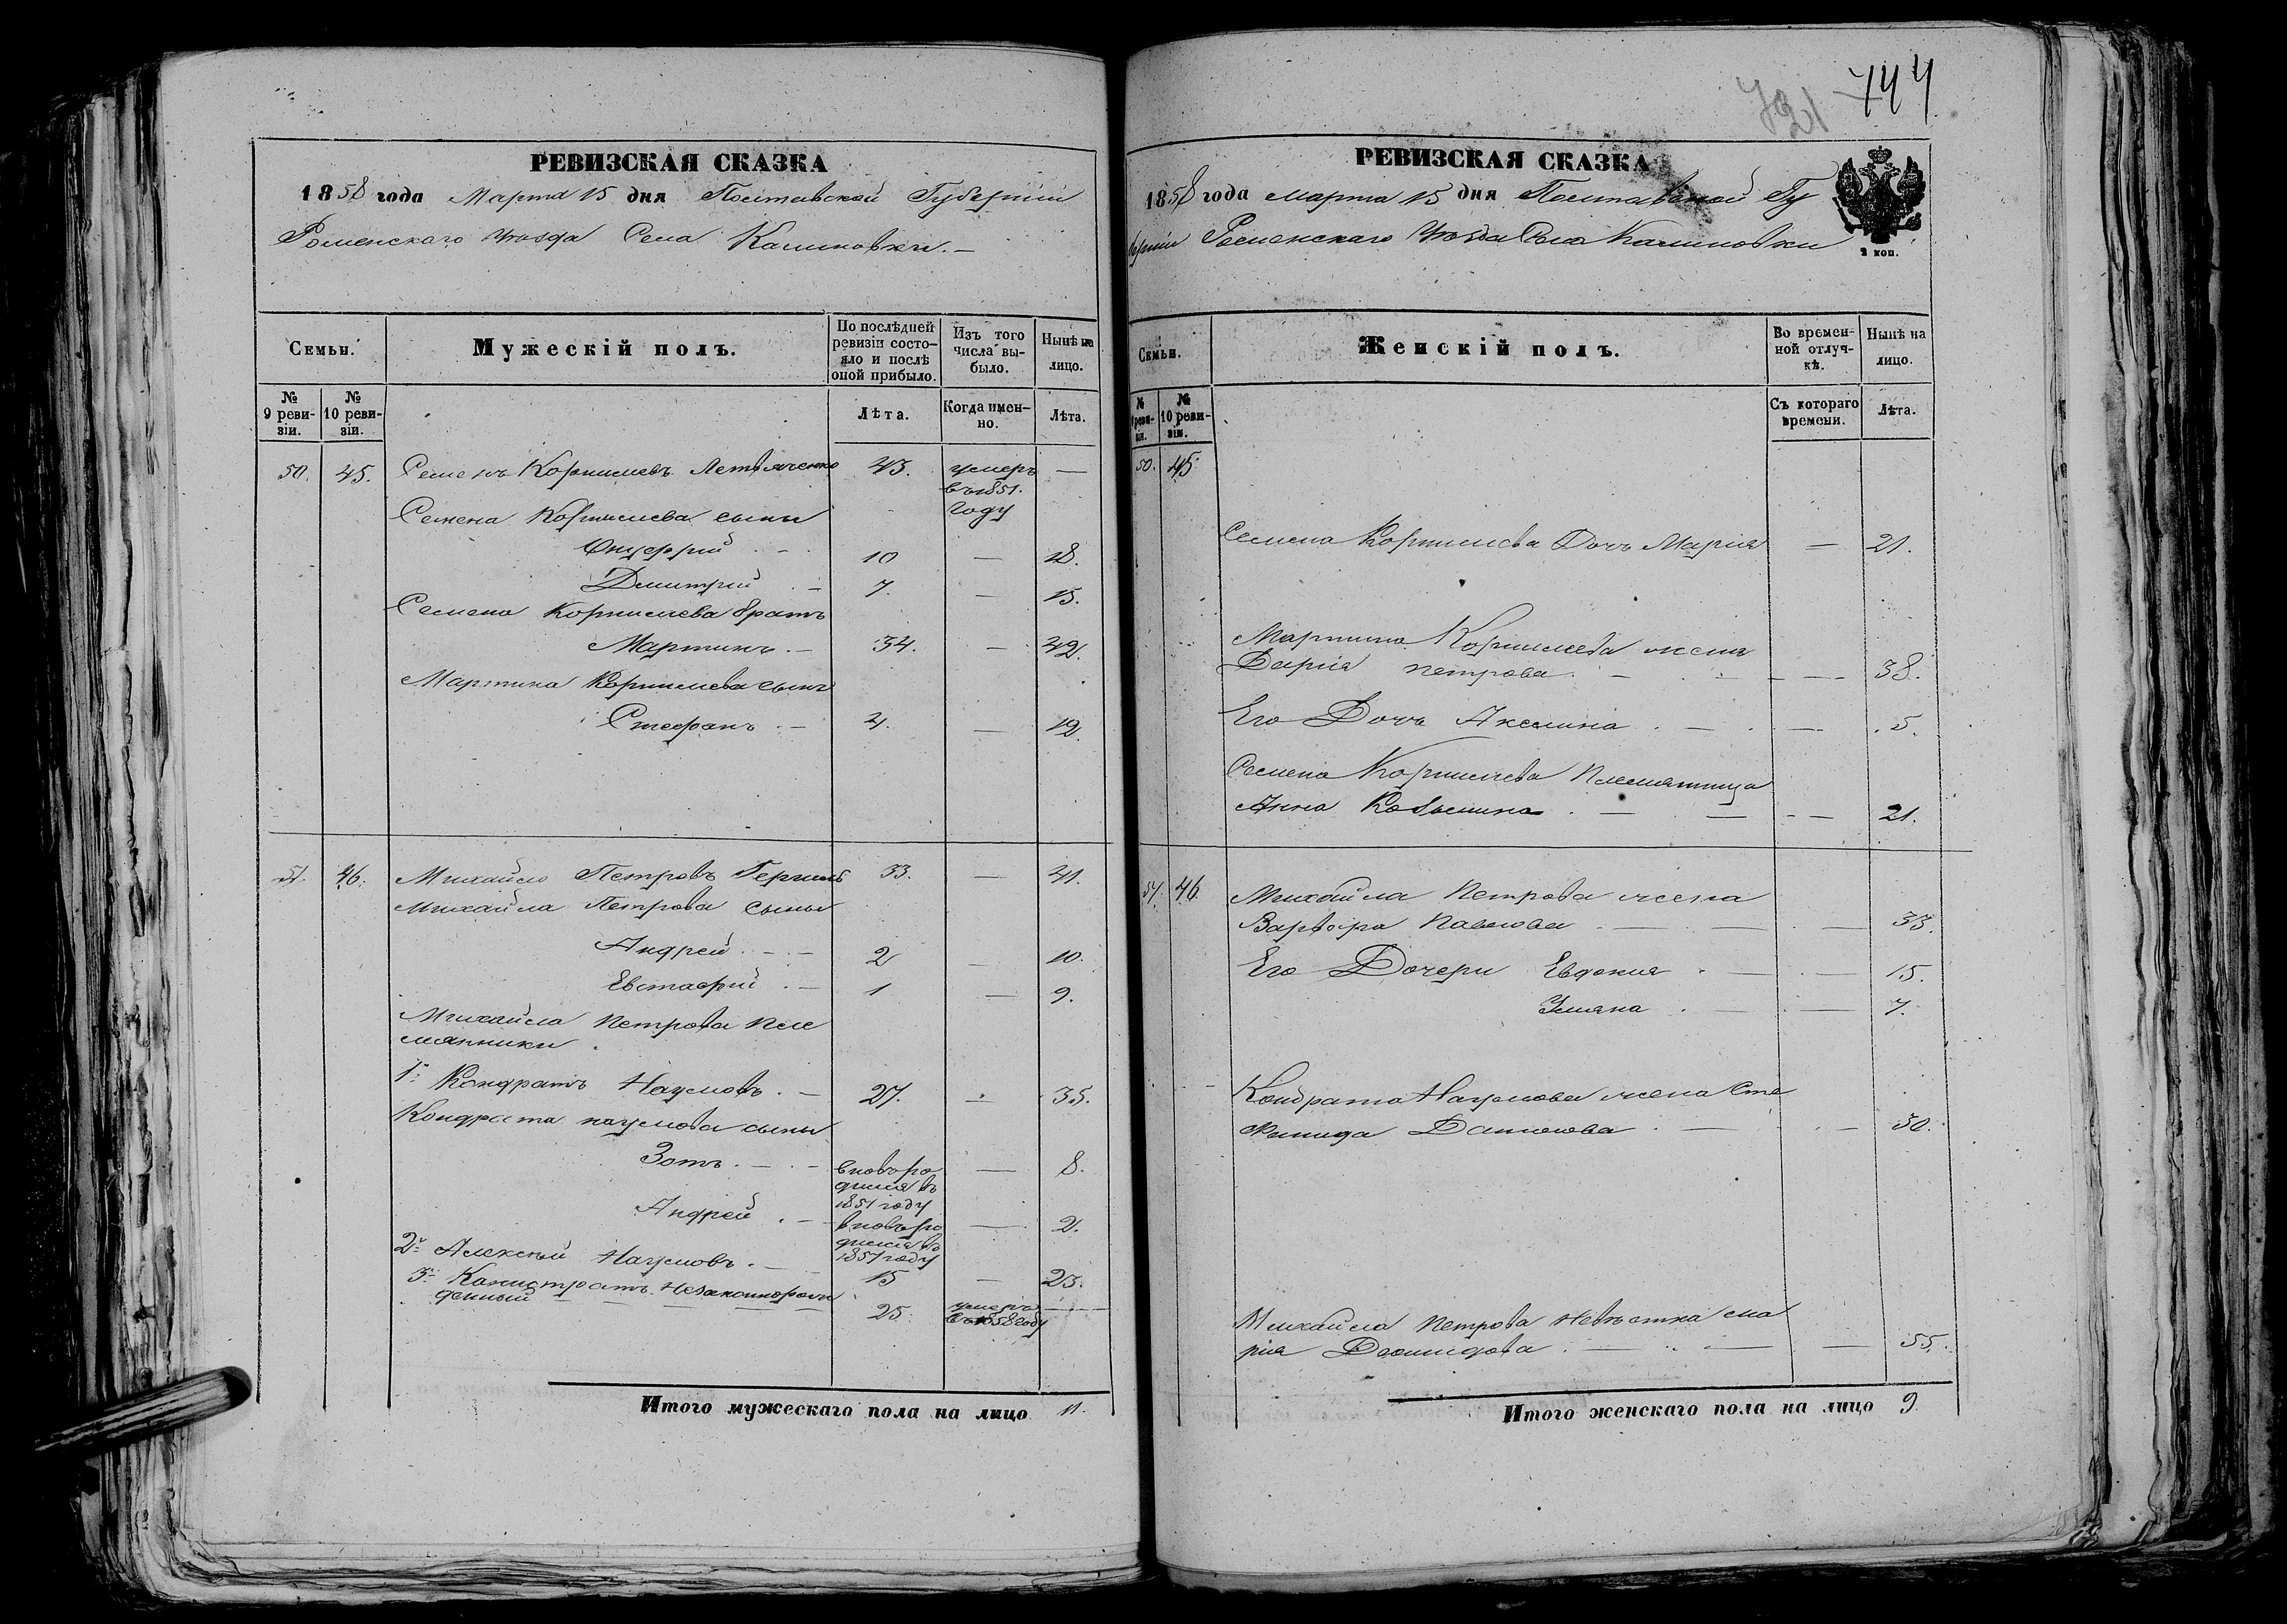 РЕВИЗСКАЯ СКАЗКА
1858 года Марта 15 дня Полтавской Губернии
Роменскаго Уѣзда Села Калиновки. —
Семьи.
Мужескій полъ.
По послѣдней ревизіи состояло и послѣ оной прибыло.
Изъ того числа выбыло.
Нынѣ на лицо.
№ 9 ревизіи.
№ 10 ревизіи.
Лѣта.
Когда именно.
Лѣта.
50. 45. Семенъ Корнилевъ 43. умеръ —
въ 1851.
Семена Корнилева сыны году
Онуфрий 10 — 18.
Дмитрий 7. — 15.
Семена Корнилева братъ
Мартинъ — 34. — 42.
Мартина Корнилева сынъ
Стефанъ — 4. — 12.
51. 46. Михайло Петровъ 33. — 41.
Михайла Петрова сыны
Андрей — 2 — 10.
Евстафий — 1 — 9.
Михайла Петрова пле
мянники
1й Кондратъ Наумовъ — 27. — 35.
Кондрата Наумова сыны
Зотъ — вновь ро — 8.
дился въ
1851 году
Андрей — вновь ро — 2.
дился въ
1857 году
2й Алексѣй Наумовъ — 15 — 23.
3й Калистратъ незаконнорож
денный — 25. умеръ —
въ 1858 году
Итого мужескаго пола на лицо 11.
744
721
РЕВИЗСКАЯ СКАЗКА
1858 года Марта 15 дня Полтавской Гу
берніи Роменскаго Уѣзда Села Калиновки
2 коп.
Семьи.
Женскій полъ.
Во временной отлучкѣ.
Нынѣ на лицо.
№ 9 ревизіи.
№ 10 ревизіи.
Съ котораго времени.
Лѣта.
50. 45
Семена Корнилева Дочь Марія — 21.
Мартина Корнилева жена
Дарія Петрова — 38.
Его Дочь Акелина — 5.
Семена Корнилева Племянница
Анна Козьмина — 21.
51. 46 Михайла Петрова жена
Варвара Павлова — 33.
Его Дочери Евдокия — 15.
Уляна — 7.
Кондрата Наумова жена Сте
фанида Данилова — 30.
Михайла Петрова невѣстка Ма
рия Деомидова — 55.
Итого женскаго пола на лицо 9